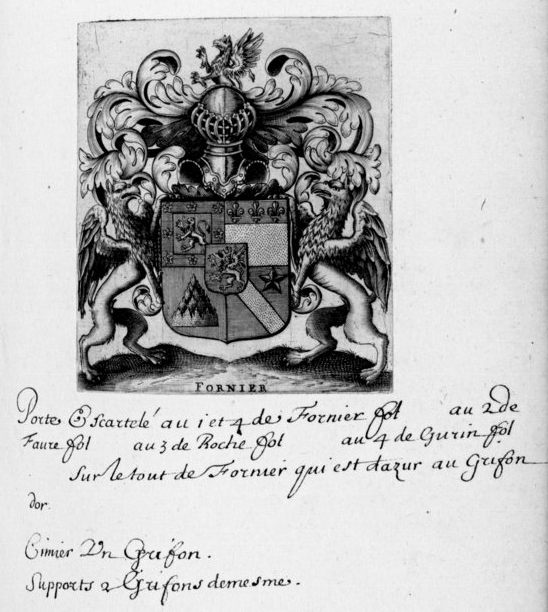 FORNIER
Porte Escartelé au 1 et 4 de Fornier fol au 2 de
Faure fol au 3 de Roche fol au 4 de Gurin fol
Sur le tout de Fornier qui est dazur au Grifon
dor.
Cimier Un Grifon.
Supports 2 Grifons demesme.